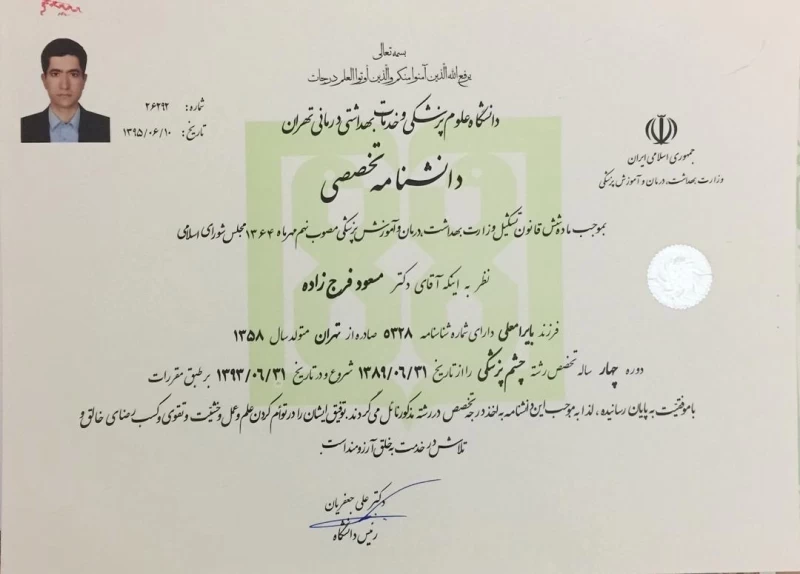 بسمه تعالی
یرفع الله الذین آمنوا منکم والذین اوتوا العلم درجات
شماره: ۲۶۲۹۲
تاریخ: ۱۳۹۵/۰۶/۱۰
دانشگاه علوم پزشکی و خدمات بهداشتی درمانی تهران
جمهوری اسلامی ایران
وزارت بهداشت، درمان و آموزش پزشکی
دانشنامه تخصصی
بموجب ماده شش قانون تشکیل وزارت بهداشت، درمان و آموزش پزشکی مصوب نهم مهرماه ۱۳۶۴ مجلس شورای اسلامی
نظر به اینکه آقای دکتر مسعود فرج زاده
فرزند بایرامعلی دارای شماره شناسنامه ۵۳۲۸ صادره از تهران متولد سال ۱۳۵۸
دوره چهار ساله تخصص رشته چشم پزشکی را از تاریخ ۱۳۸۹/۰۶/۳۱ شروع و در تاریخ ۱۳۹۳/۰۶/۳۱ بر طبق مقررات
با موفقیت به پایان رسانیده، لذا به موجب این دانشنامه به اخذ درجه تخصص در رشته مذکور نائل می گردند. توفیق ایشان را در توأم کردن علم و عمل و خشیت و تقوی و کسب رضای خالق و
تلاش در خدمت به خلق آرزومند است.
دکتر علی جعفریان
رئیس دانشگاه